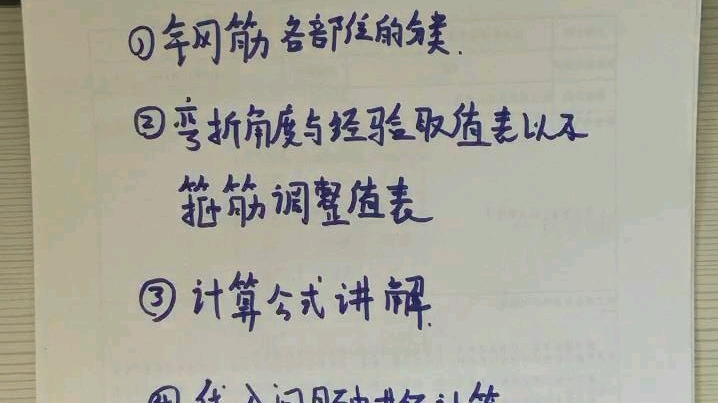 ①钢筋各部位的分类.
②弯折角度与经验取值表以及
箍筋调整值表
③计算公式讲解.
④代入问题中进行计算